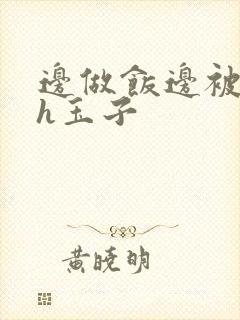 邊做飯邊被
h玉子
黃曉明